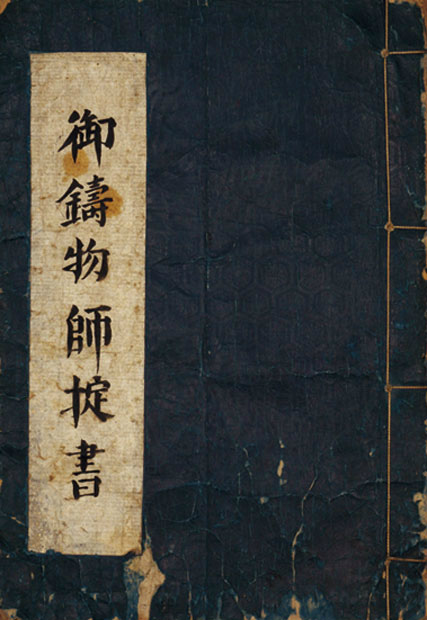 御鑄物師掟書